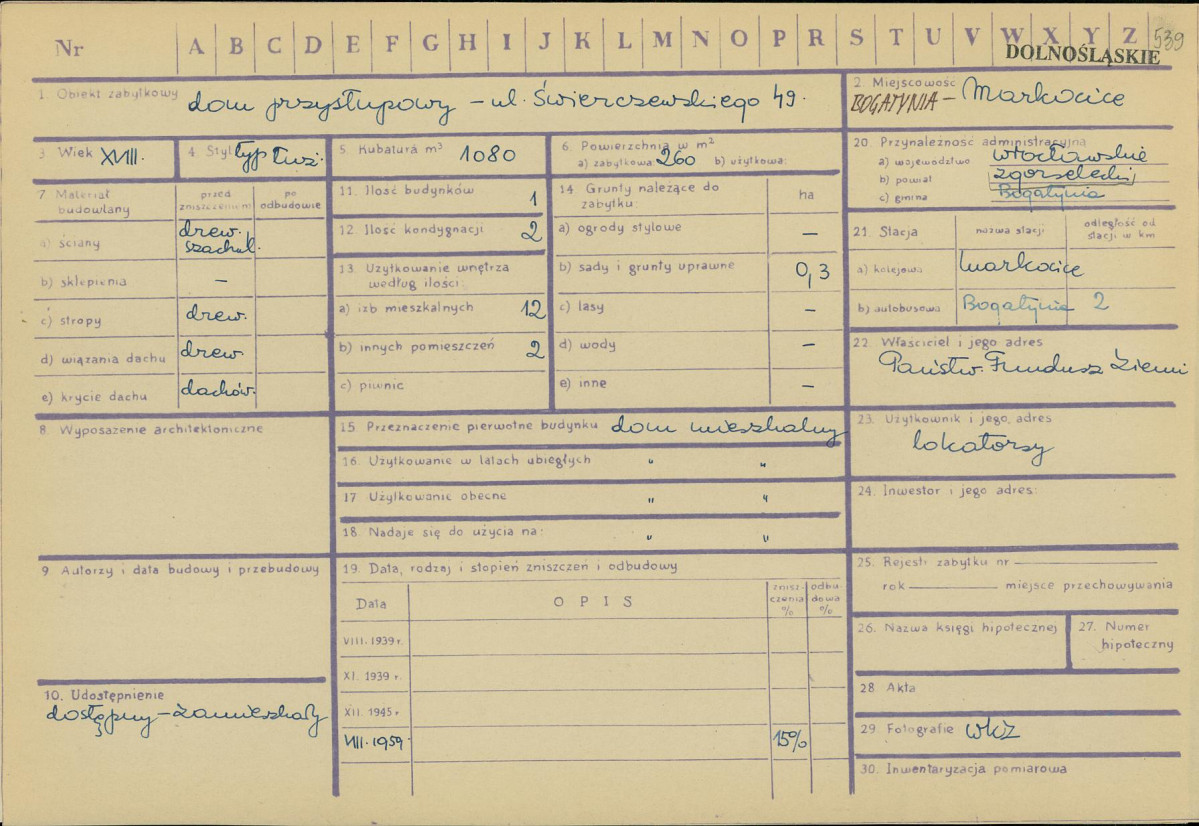 Nr A B C D E F G H I J K L M N O P R S T U V W X Y Z 539
DOLNOŚLĄSKIE
1. Obiekt zabytkowy dom przysłupowy – ul. Świerczewskiego 49.
2. Miejscowość
BOGATYNIA – Markocice
3. Wiek XVIII.
4. Styl typ łuż.
5. Kubatura m³ 1080
6. Powierzchnia w m²
a) zabytkowa: 260 b) użytkowa:
7 Materiał budowlany
przed zniszczeniem
po odbudowie
a) ściany drew. szachul.
b) sklepienia –
c) stropy drew.
d) wiązania dachu drew.
e) krycie dachu dachów.
8. Wyposażenie architektoniczne
9. Autorzy i data budowy i przebudowy
10. Udostępnienie
dostępny – zamieszkały
11. Ilość budynków 1
12. Ilość kondygnacji 2
13. Użytkowanie wnętrza
według ilości:
a) izb mieszkalnych 12
b) innych pomieszczeń 2
c) piwnic
14 Grunty należące do
zabytku:
ha
a) ogrody stylowe –
b) sady i grunty uprawne 0,3
c) lasy –
d) wody –
e) inne –
15 Przeznaczenie pierwotne budynku dom mieszkalny
16. Użytkowanie w latach ubiegłych " "
17 Użytkowanie obecne " "
18. Nadaje się do użycia na: " "
19. Data, rodzaj i stopień zniszczeń i odbudowy
Data
OPIS
znisz-
czenia
%
odbu-
dowa
%
VIII. 1939 r.
XI. 1939 r.
XII. 1945 r
VIII. 1959. 15%
20. Przynależność administracyjna
a) województwo wrocławskie
b) powiat zgorzelecki
c) gmina Bogatynia
21. Stacja
nazwa stacji
odległość od
stacji w km
a) kolejowa Markocice
b) autobusowa Bogatynia 2
22. Właściciel i jego adres
Państw. Fundusz Ziemi
23. Użytkownik i jego, adres
lokatorzy
24. Inwestor i jego adres:
25. Rejestr zabytku nr
rok miejsce przechowywania
26. Nazwa księgi hipotecznej
27. Numer
hipoteczny
28. Akta
29. Fotografie WKZ
30. Inwentaryzacja pomiarowa